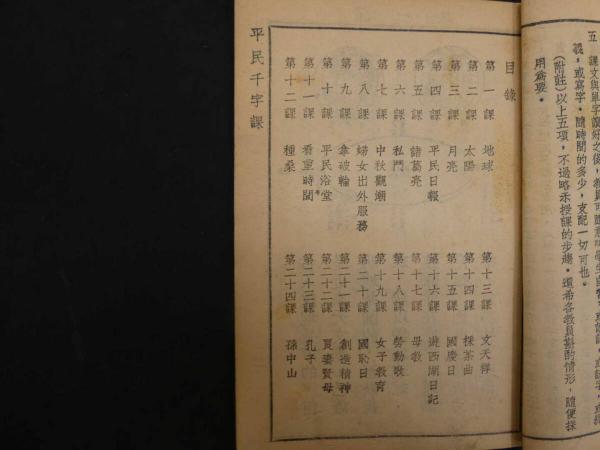 五 課文與單字讀好之後，教員可
義，或寫字。隨時間的多少，支配一切可也。
（附註）以上五項，不過略示授課的步趨。還希各教員斟酌情形，隨便採
用爲要。
目錄
第一課 地球
第二課 太陽
第三課 月亮
第四課 平民日報
第五課 諸葛亮
第六課 私鬥
第七課 中秋觀潮
第八課 婦女出外服務
第九課 拿破輪
第十課 平民浴堂
第十一課 看重時間
第十二課 種桑
第十三課 文天祥
第十四課 採茶曲
第十五課 國慶日
第十六課 遊西湖日記
第十七課 母教
第十八課 勞動歌
第十九課 女子教育
第二十課 國恥日
第二十一課 創造精神
第二十二課 良妻賢母
第二十三課 孔子
第二十四課 孫中山
平民千字課